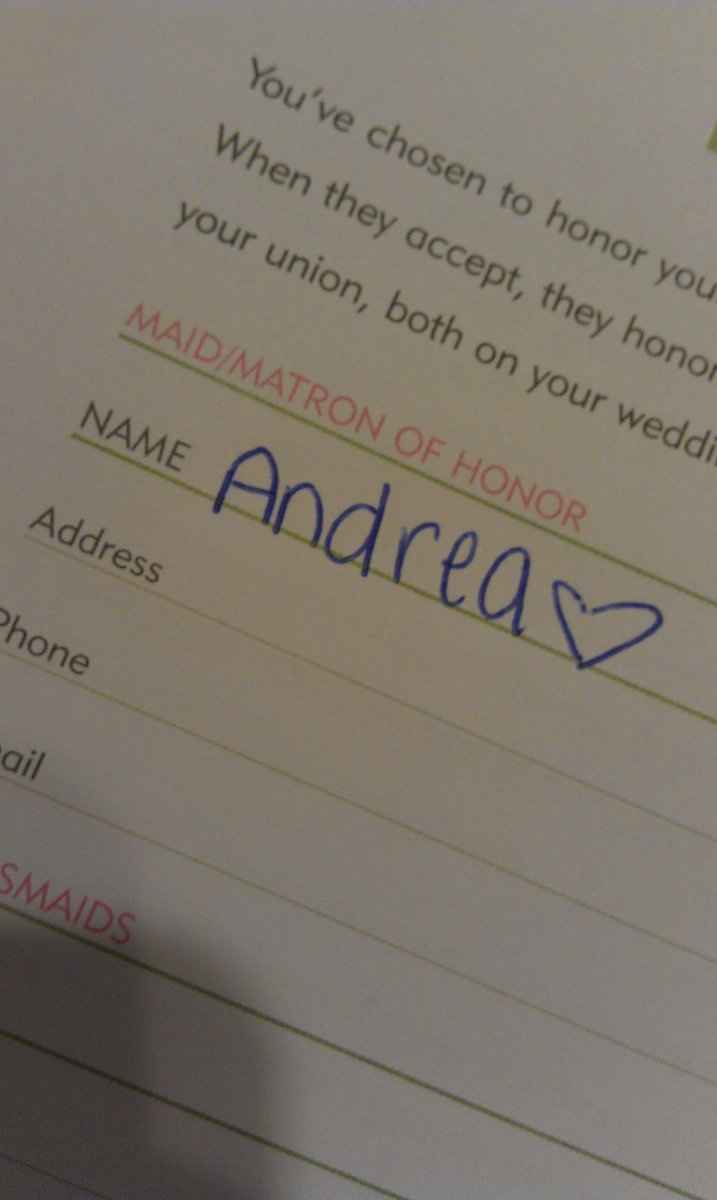 You've chosen to honor you
When they accept, they honor
your union, both on your weddi
MAID/MATRON OF HONOR
NAME Andrea♡
Address
Phone
ail
SMAIDS